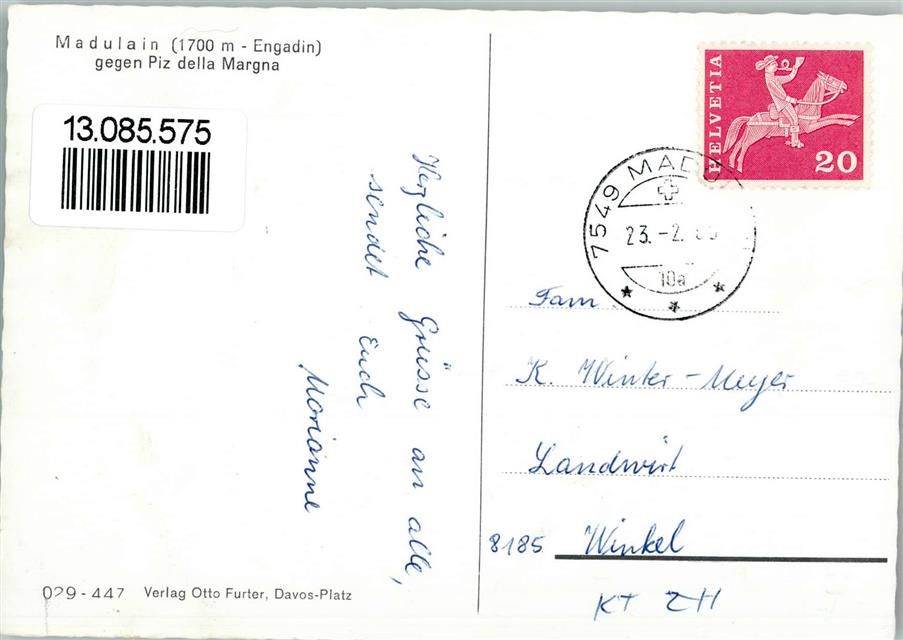 Madulain (1700 m - Engadin)
gegen Piz della Margna
13.085.575
Herzliche Grüsse an alle,
sendet Euch
Marianne
029 - 447 Verlag Otto Furter, Davos-Platz
HELVETIA
20
7549 MADU
23.-2.
10a
Fam
K. Winkler-Meyer
Landwirt
8185 Winkel
KT ZH